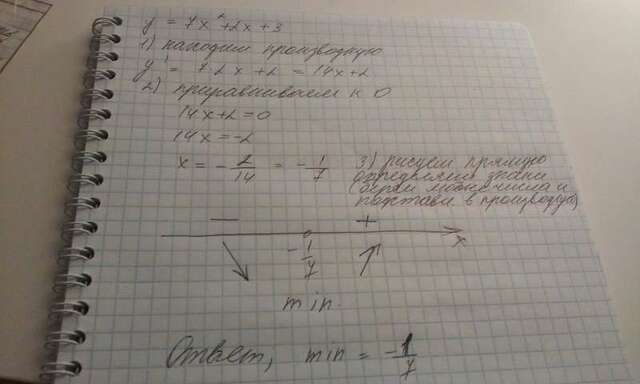 y = 7x² + 2x + 3
1) находим производную
y' = 7·2x + 2 = 14x + 2
2) приравниваем к 0
14x + 2 = 0
14x = -2
x = -2/14 = -1/7
3) рисуем прямую
определяем знаки
(берём числа и
подстав в производную)
− +
-1/7 x
min.
Ответ, min = -1/7